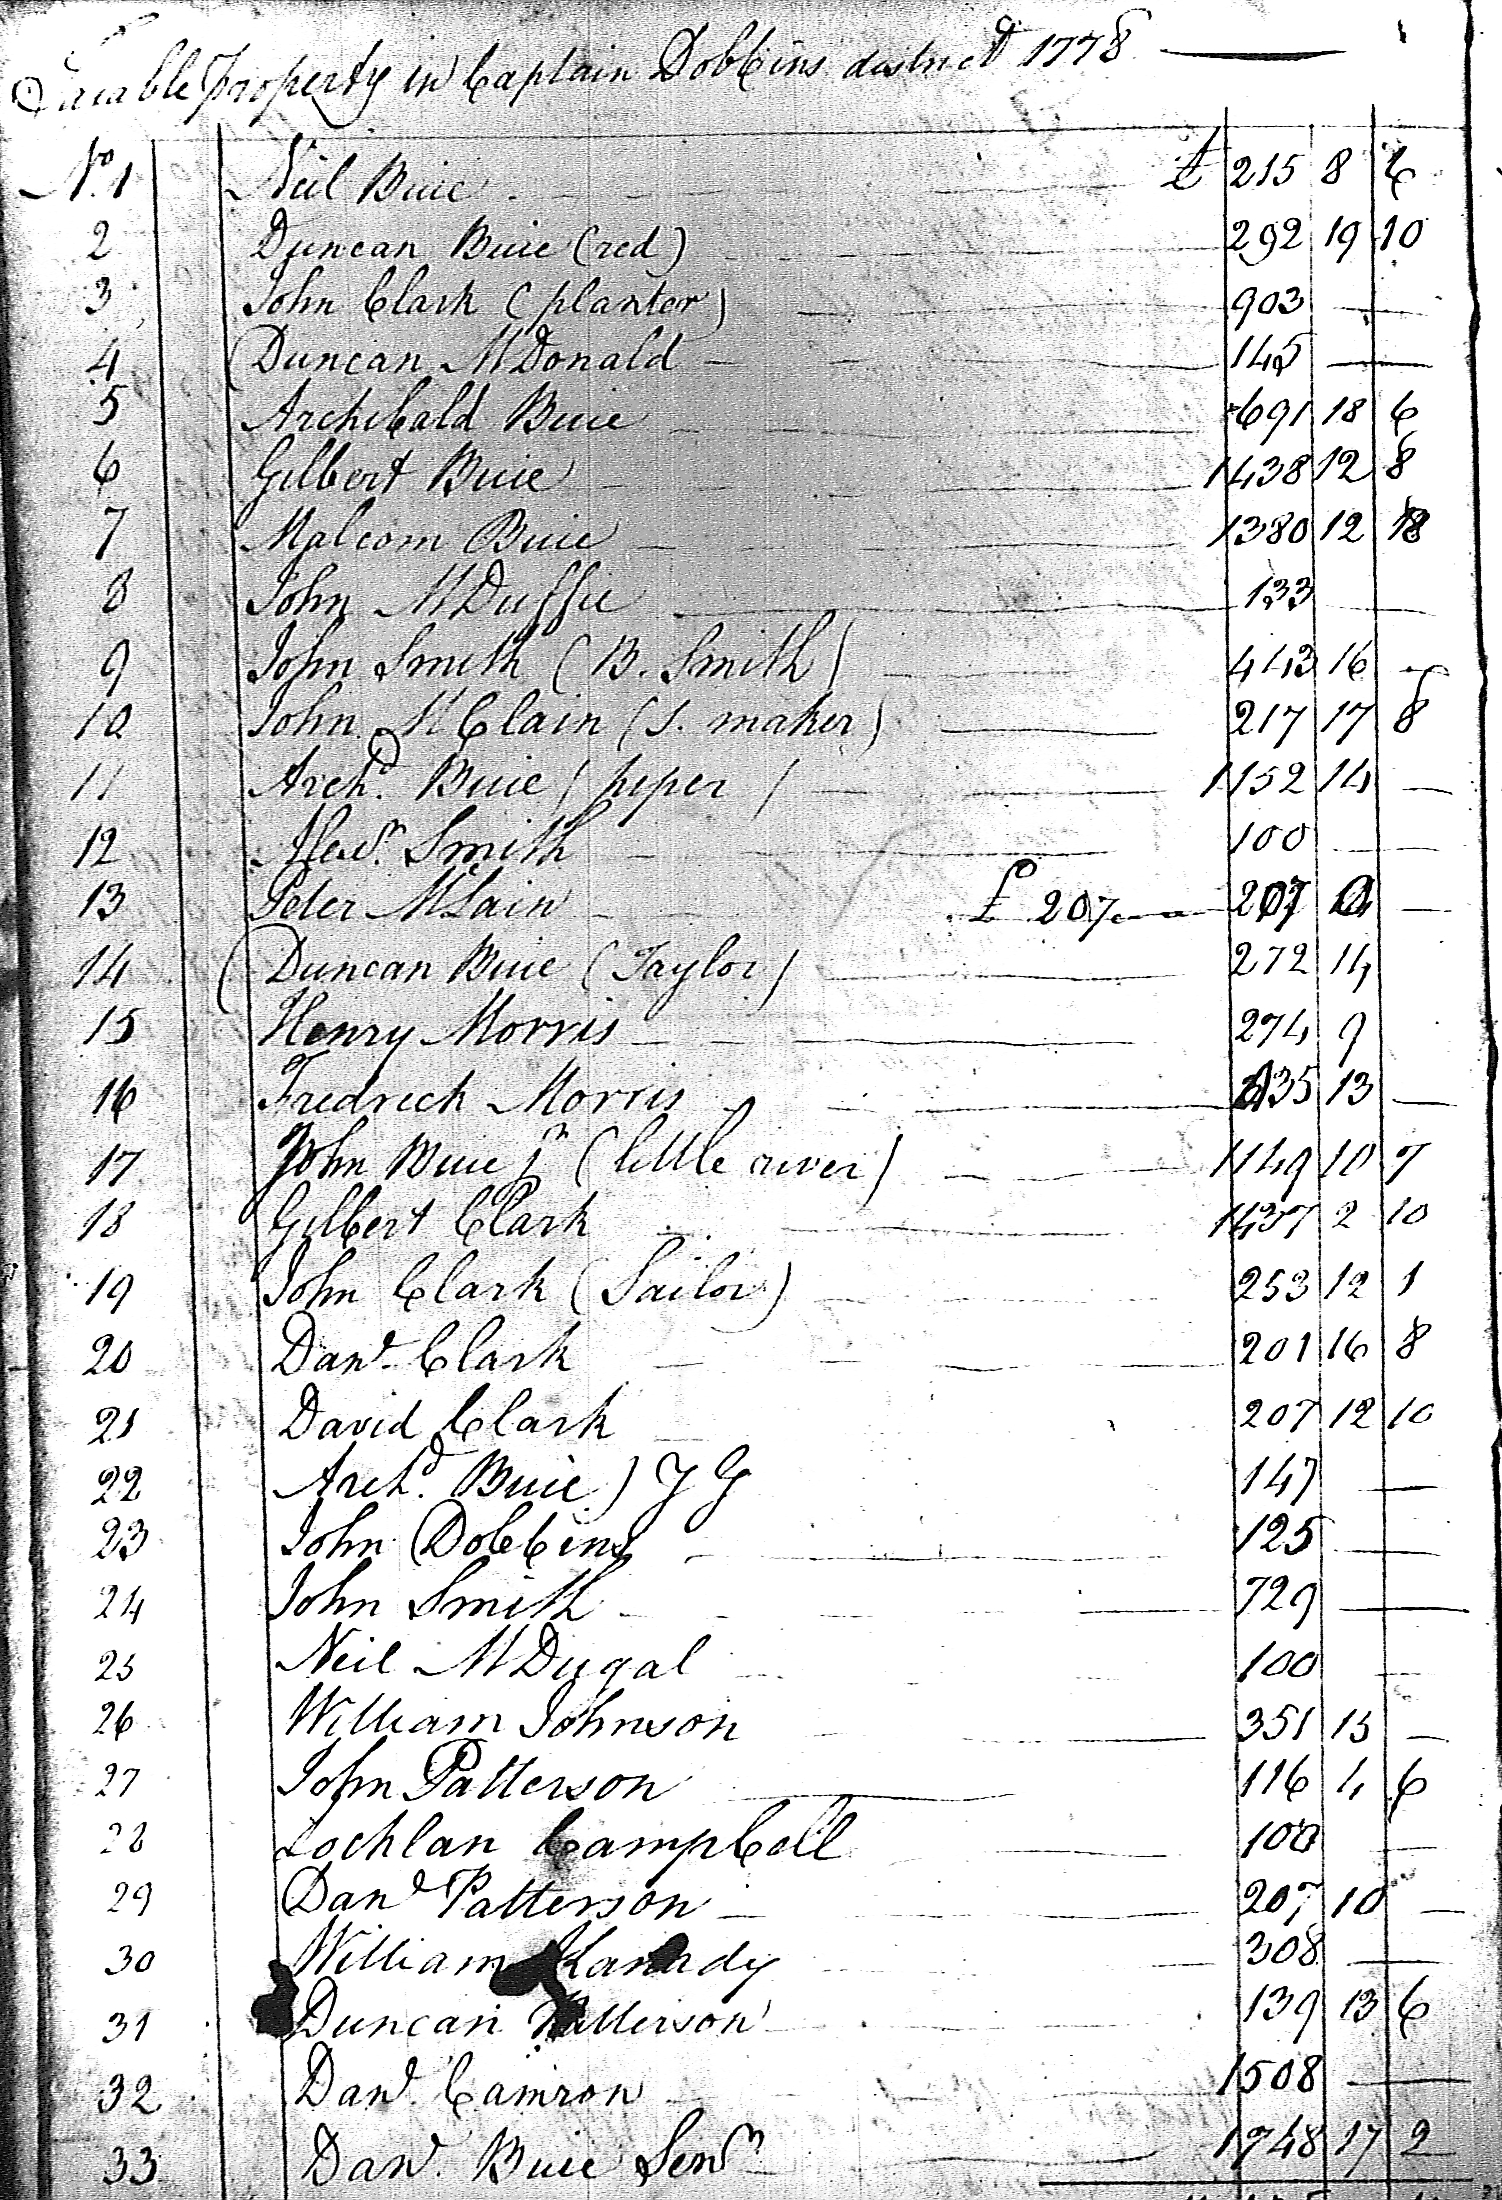 Taxable Property in Captain Dobbins district 1778
No. 1 Neil Buie £ 215 8 6
2 Duncan Buie (red) 292 19 10
3 John Clark (planter) 903
4 Duncan McDonald 145
5 Archibald Buie 691 18 6
6 Gilbert Buie 1438 12 8
7 Malcom Buie 1380 12
8 John McDuffie 133
9 John Smith (B. Smith) 443 16
10 John McClain (s. maker) 217 17 8
11 Archd. Buie (piper) 1152 14
12 Alexr. Smith 100
13 Peter McLain £ 207 207
14 Duncan Buie (Taylor) 272 14
15 Henry Morris 274 9
16 Fredrick Morris 13
17 John Buie jr (little river) 1149 10 7
18 Gilbert Clark 1437 2 10
19 John Clark (Sailor) 253 12 1
20 Danl. Clark 201 16 8
21 David Clark 207 12 10
22 Archd. Buie ) J G 147
23 John Dobbins 125
24 John Smith 729
25 Neil McDugal 100
26 William Johnson 351 15
27 John Patterson 116 4 6
28 Lochlan Campbell 100
29 Danl Patterson 207 10
30 William Kanady 308
31 Duncan Patterson 139 13 6
32 Danl. Camron 1508
33 Danl. Buie Senr 1748 17 2